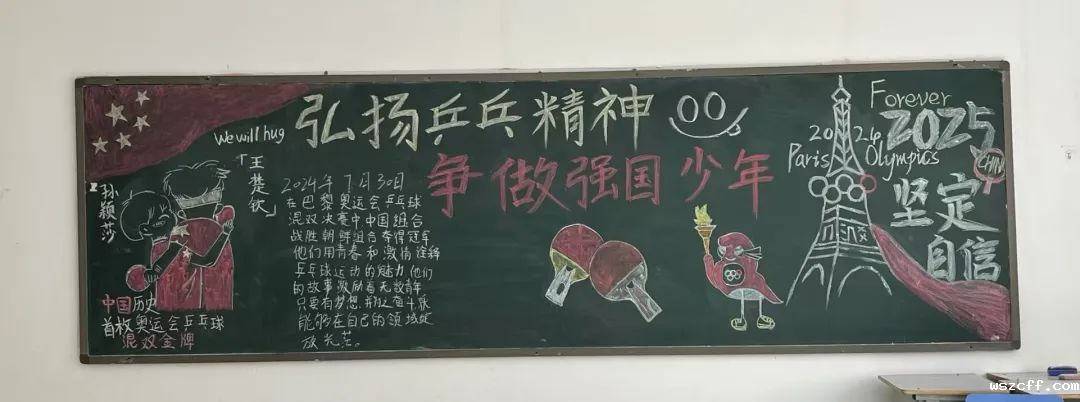 弘扬乒乓精神
争做强国少年
We will hug
王楚钦
孙颖莎
2024年7月30日
在巴黎奥运会乒乓球
混双决赛中中国组合
战胜朝鲜组合夺得冠军
他们用青春和激情诠释
乒乓球运动的魅力,他们
的故事激励着无数青年
只要有梦想,
能够在自己的领域绽
放光芒。
中国历史
首枚奥运会乒乓球
混双金牌
Forever
2025
2024
Paris Olympics
CHN
坚定
自信
wszcff.com